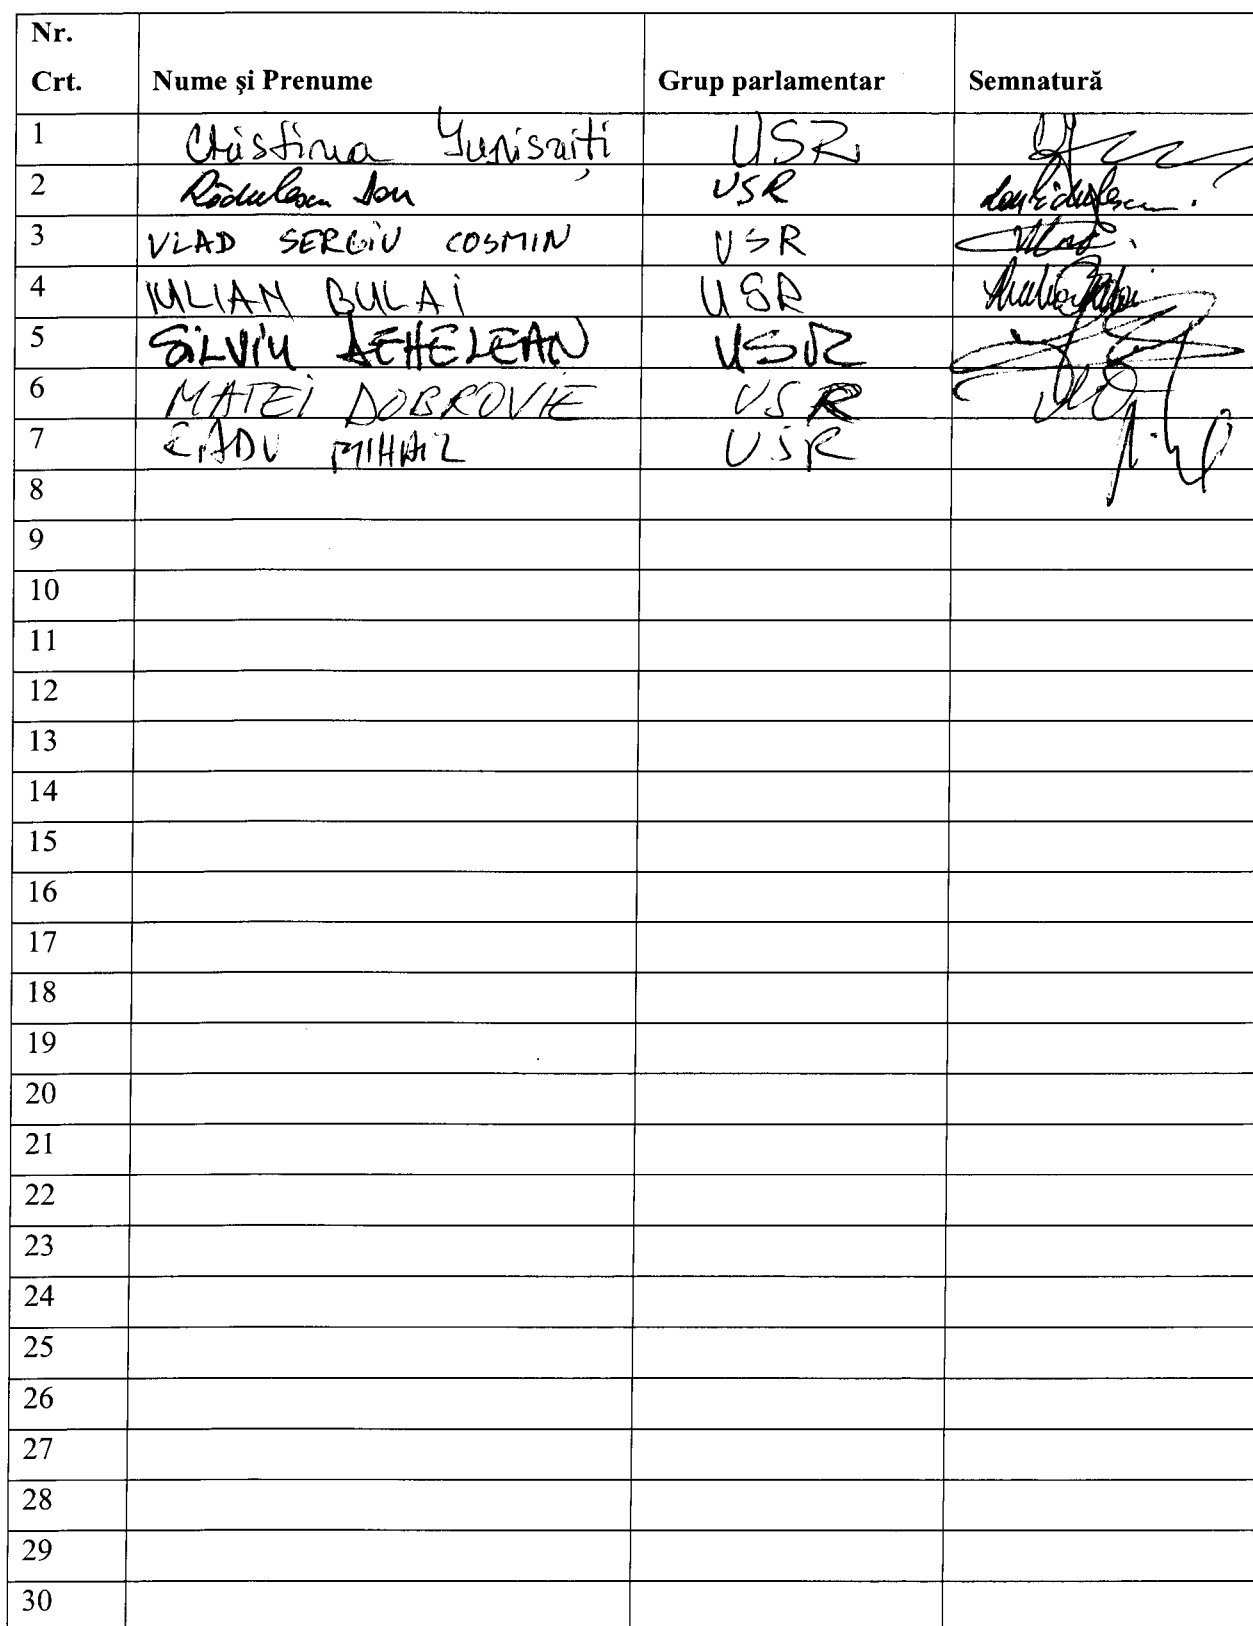 Nr.
Crt. Nume şi Prenume Grup parlamentar Semnatură
1 Cristina Iurisniti USR
2 Rădulescu Ion USR Ion Rădulescu.
3 VLAD SERGIU COSMIN USR
4 IULIAN BULAI USR Iulian Bulai
5 SILVIU DEHELEAN USR
6 MATEI DOBROVIE USR
7 RADU MIHAIL USR
8
9
10
11
12
13
14
15
16
17
18
19
20
21
22
23
24
25
26
27
28
29
30